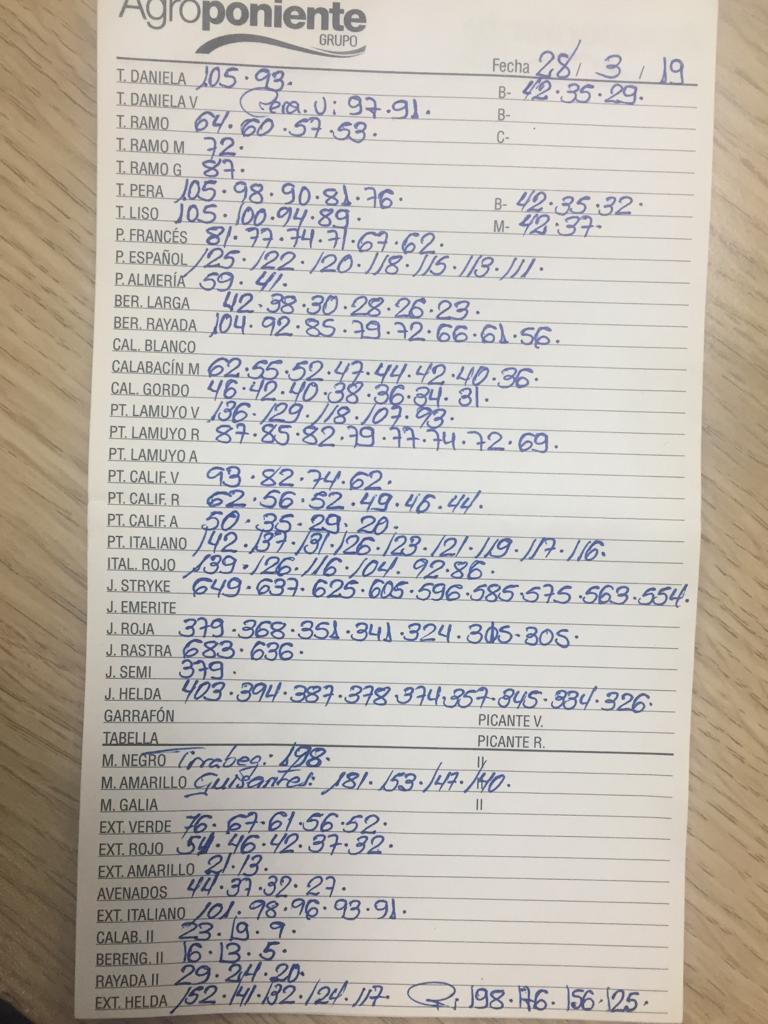 Agroponiente
GRUPO
Fecha 28 / 3 / 19
T. DANIELA 105 · 93. B- 42 · 35 · 29.
T. DANIELA V Pera. V: 97 · 91. B-
T. RAMO 64 · 60 · 57 · 53. C-
T. RAMO M 72.
T. RAMO G 87.
T. PERA 105 · 98 · 90 · 81 · 76. B- 42 · 35 · 32.
T. LISO 105 · 100 · 94 · 89. M- 42 · 37.
P. FRANCÉS 81 · 77 · 74 · 71 · 67 · 62.
P. ESPAÑOL 125 · 122 · 120 · 118 · 115 · 113 · 111.
P. ALMERÍA 59 · 41.
BER. LARGA 42 · 38 · 30 · 28 · 26 · 23.
BER. RAYADA 104 · 92 · 85 · 79 · 72 · 66 · 61 · 56.
CAL. BLANCO
CALABACÍN M 62 · 55 · 52 · 47 · 44 · 42 · 40 · 36.
CAL. GORDO 46 · 42 · 40 · 38 · 36 · 34 · 31.
PT. LAMUYO V 136 · 129 · 118 · 107 · 93.
PT. LAMUYO R 87 · 85 · 82 · 79 · 77 · 74 · 72 · 69.
PT. LAMUYO A
PT. CALIF. V 93 · 82 · 74 · 62.
PT. CALIF. R 62 · 56 · 52 · 49 · 46 · 44.
PT. CALIF. A 50 · 35 · 29 · 20.
PT. ITALIANO 142 · 137 · 131 · 126 · 123 · 121 · 119 · 117 · 116.
ITAL. ROJO 139 · 126 · 116 · 104 · 92 · 86.
J. STRYKE 649 · 637 · 625 · 605 · 596 · 585 · 575 · 563 · 554.
J. EMERITE
J. ROJA 379 · 368 · 351 · 341 · 324 · 315 · 305.
J. RASTRA 683 · 636.
J. SEMI 379.
J. HELDA 403 · 394 · 387 · 378 · 374 · 357 · 345 · 334 · 326.
GARRAFÓN PICANTE V.
TABELLA PICANTE R.
M. NEGRO Tirabeq.: 198. II
M. AMARILLO Guisantes: 181 · 153 · 147 · 140. II
M. GALIA II
EXT. VERDE 76 · 67 · 61 · 56 · 52.
EXT. ROJO 54 · 46 · 42 · 37 · 32.
EXT. AMARILLO 21 · 13.
AVENADOS 44 · 37 · 32 · 27.
EXT. ITALIANO 101 · 98 · 96 · 93 · 91.
CALAB. II 23 · 19 · 9.
BERENG. II 16 · 13 · 5.
RAYADA II 29 · 24 · 20.
EXT. HELDA 152 · 141 · 132 · 124 · 117. 198 · 176 · 156 · 125.